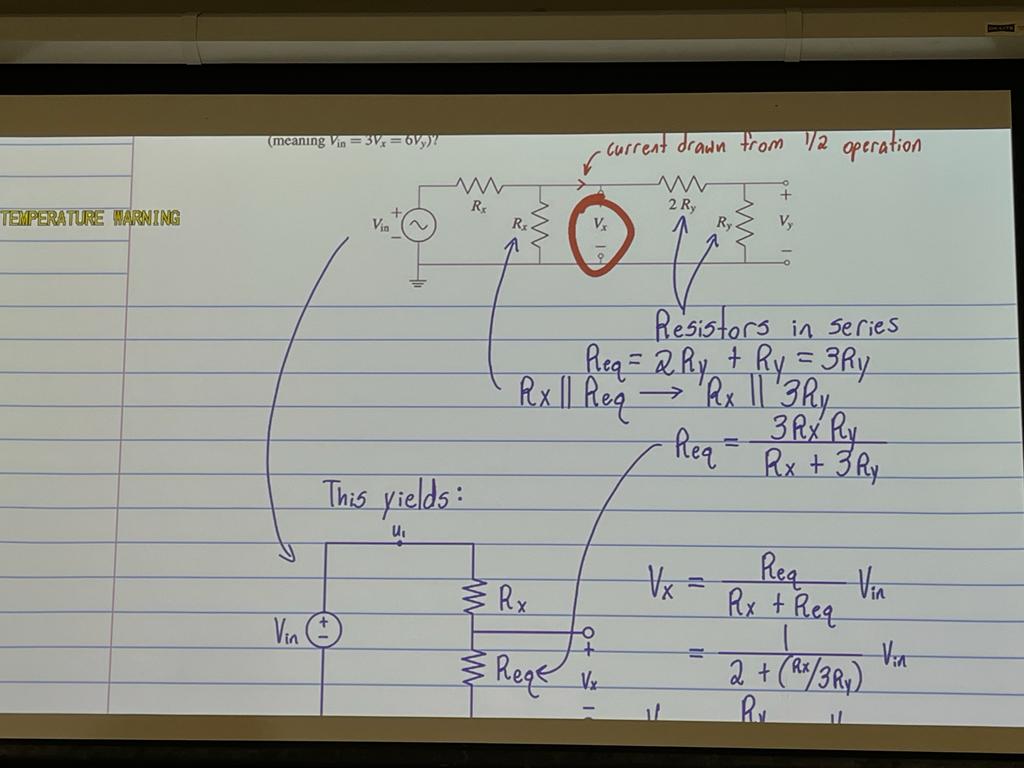 (meaning Vin = 3Vx = 6Vy)?
current drawn from 1/2 operation
TEMPERATURE WARNING
Vin + −
Rx
Rx
Vx
−
2 Ry
Ry
+
Vy
−
Resistors in series
Req = 2Ry + Ry = 3Ry
Rx || Req → Rx || 3Ry
Req = 3RxRy / Rx + 3Ry
This yields:
u1
Vin
+
−
Rx
Req
+
Vx
−
Vx = Req / Rx + Req Vin
= 1 / 2 + (Rx/3Ry) Vin
Ry